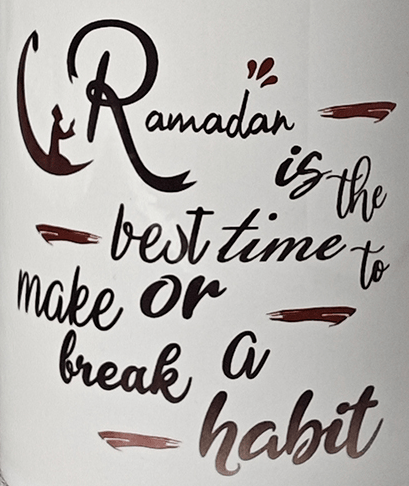 Ramadan
is the
best time to
make or
break a
habit